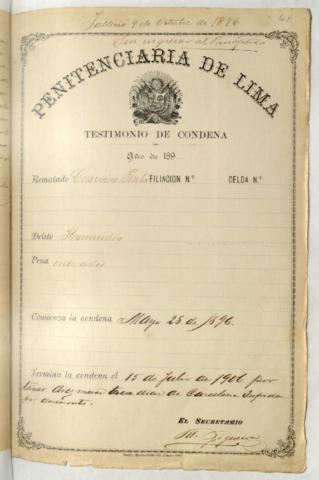 Falleció 9 de Octubre de 1896
61
Sin ingresar al Panóptico
PENITENCIARIA DE LIMA
TESTIMONIO DE CONDENA
Año de 189
Rematado Casimiro FILIACION N.° CELDA N.°
Delito Homicidio
Pena once años
Comienza la condena Mayo 28 de 1896.
Termina la condena el 15 de Julio de 1906 por
tener diez meses trece dias de Carceleria sufrida
EL SECRETARIO